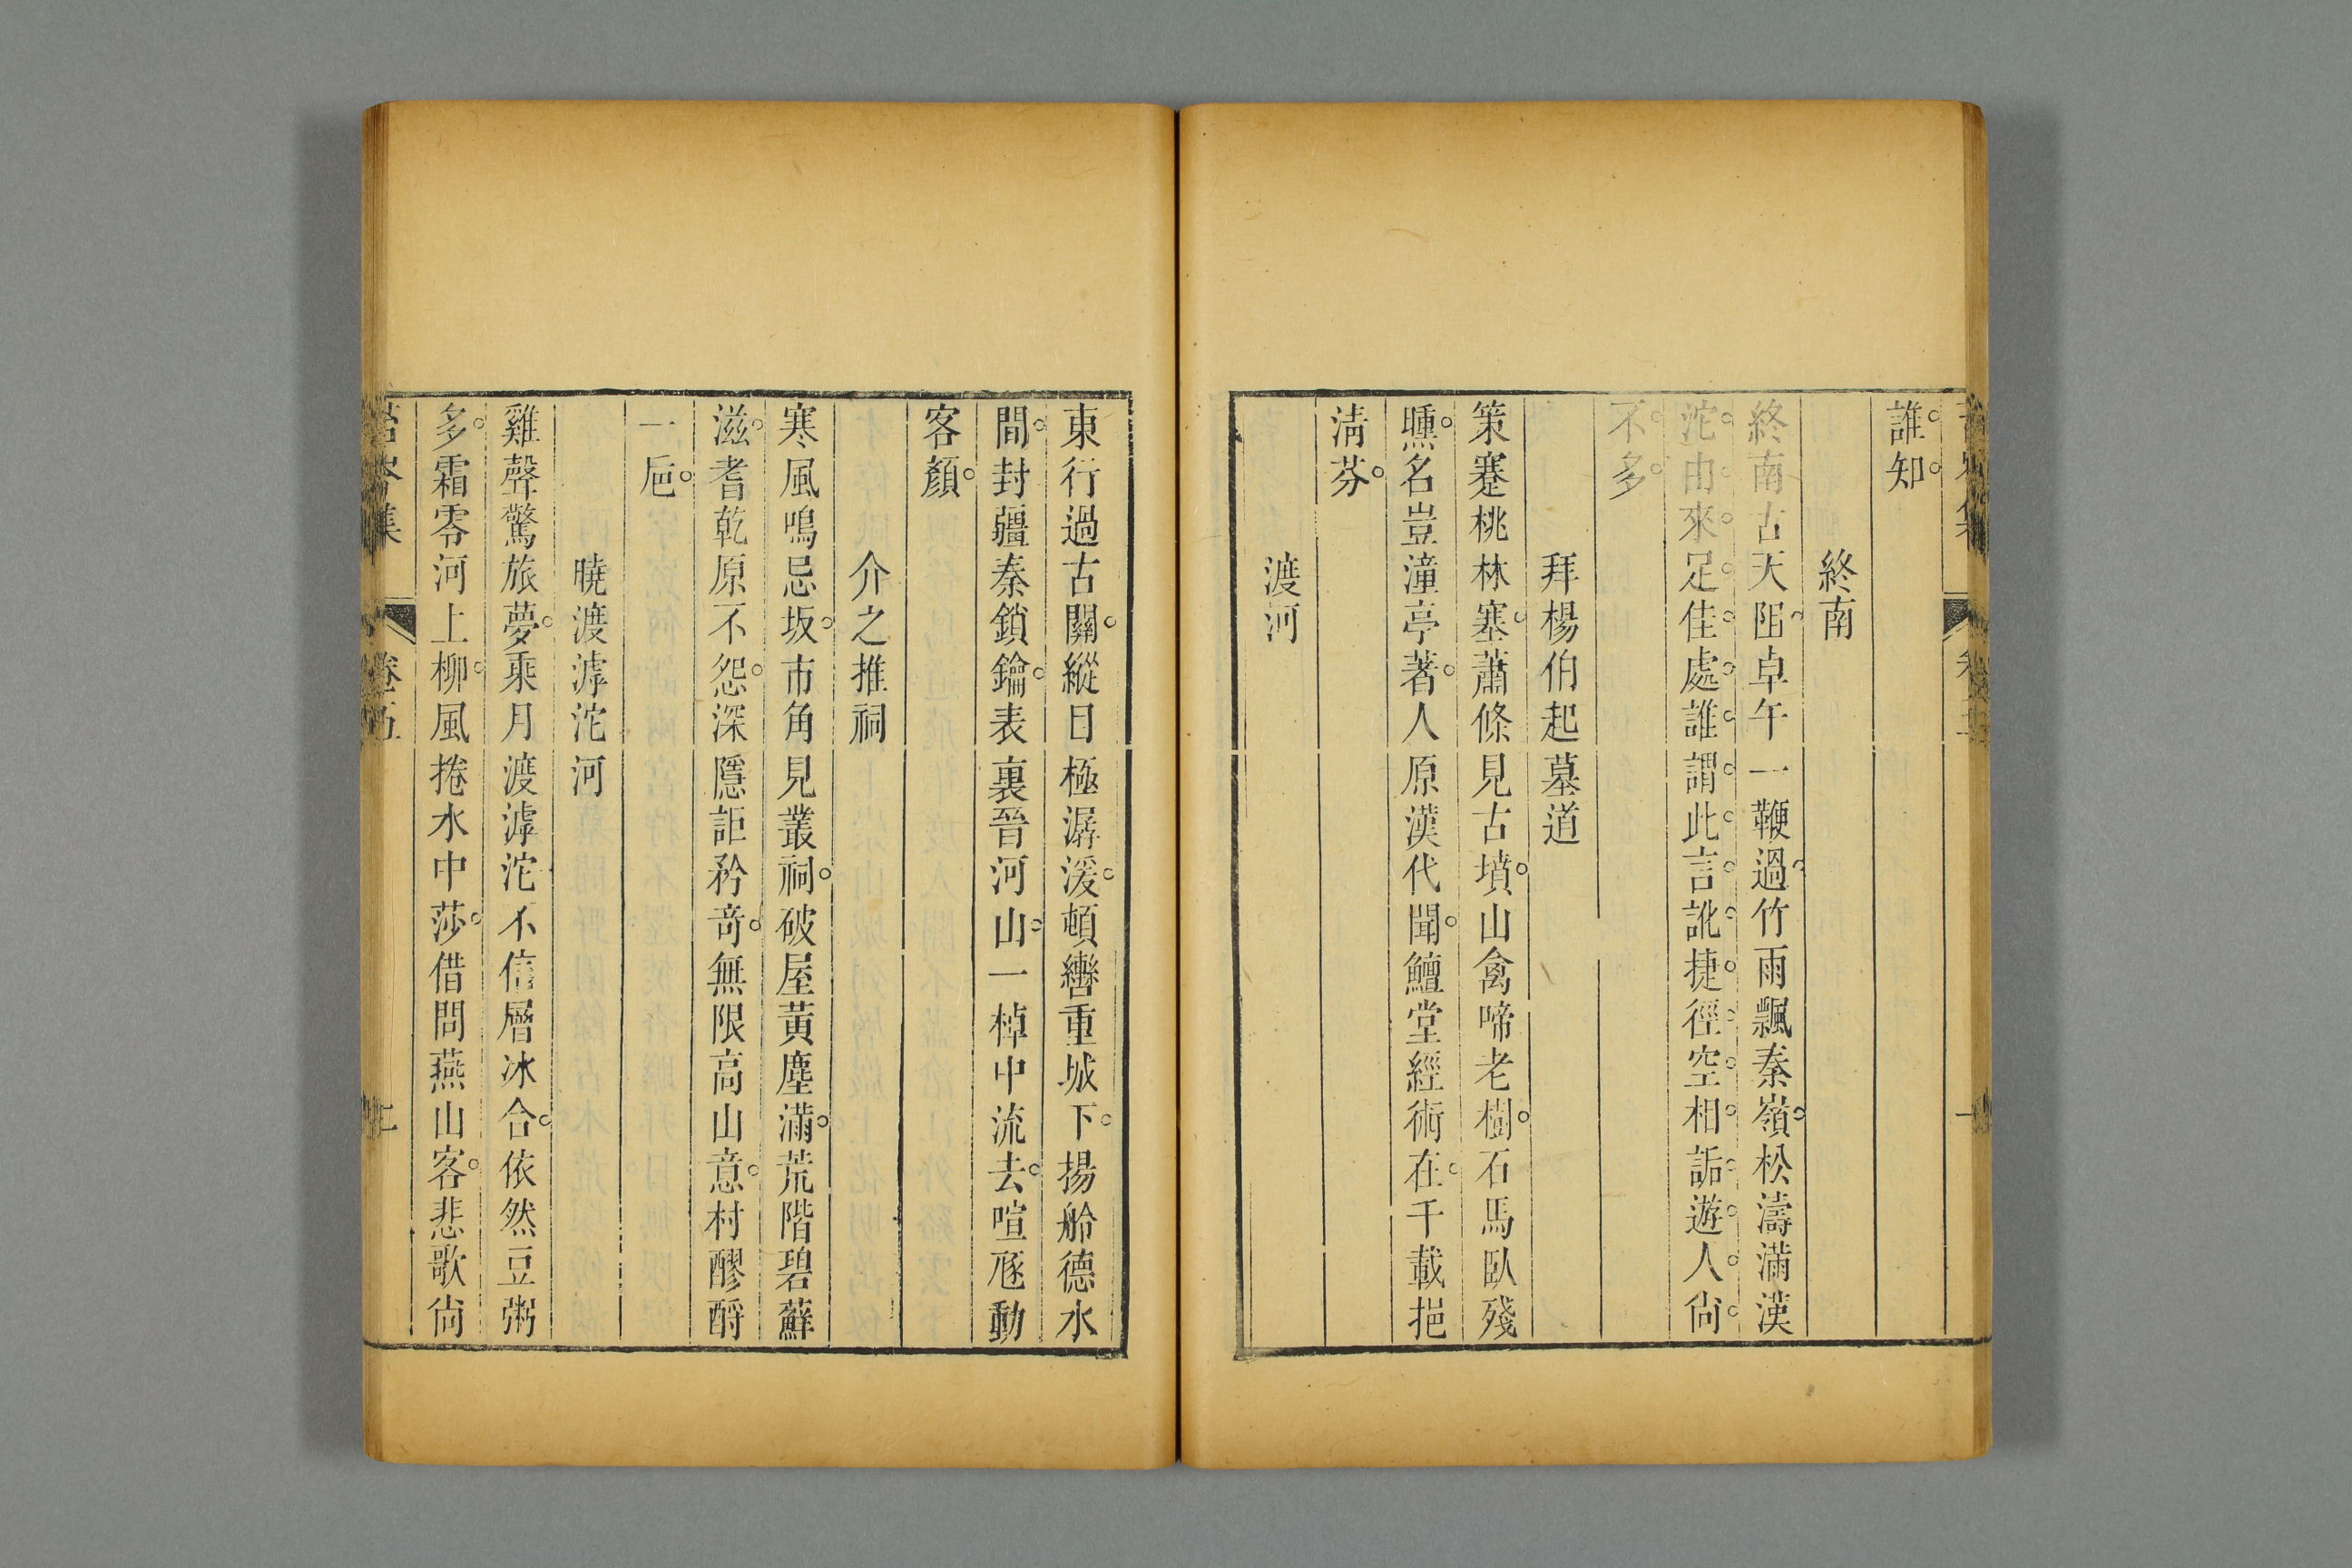 誰知
終南
終南古天阻卓午一鞭過竹雨飄秦嶺松濤滿漢
沱由來足佳處誰謂此言訛捷徑空相詬遊人尙
不多
拜楊伯起墓道
策蹇桃林塞蕭條見古墳山禽啼老樹石馬臥殘
曛名豈潼亭著人原漢代聞鱣堂經術在千載挹
淸芬
渡河
東行過古關縱目極潺湲頓轡重城下揚舲德水
間封疆秦鎖鑰表裏晉河山一棹中流去喧豗動
客顏
介之推祠
寒風鳴忌坂市角見叢祠破屋黃塵滿荒階碧蘚
滋耆乾原不怨深隱詎矜奇無限高山意村醪酹
一巵
曉渡滹沱河
雞聲驚旅夢乘月渡滹沱不信層冰合依然豆粥
多霜零河上柳風捲水中莎借問燕山客悲歌尙
卷五